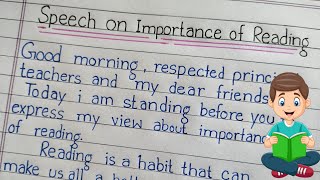 Speech on Importance of Reading
Good morning, respected princi
teachers and my dear friends
Today i am standing before you
express my view about importanc
of reading.
Reading is a habit that can
make us all a